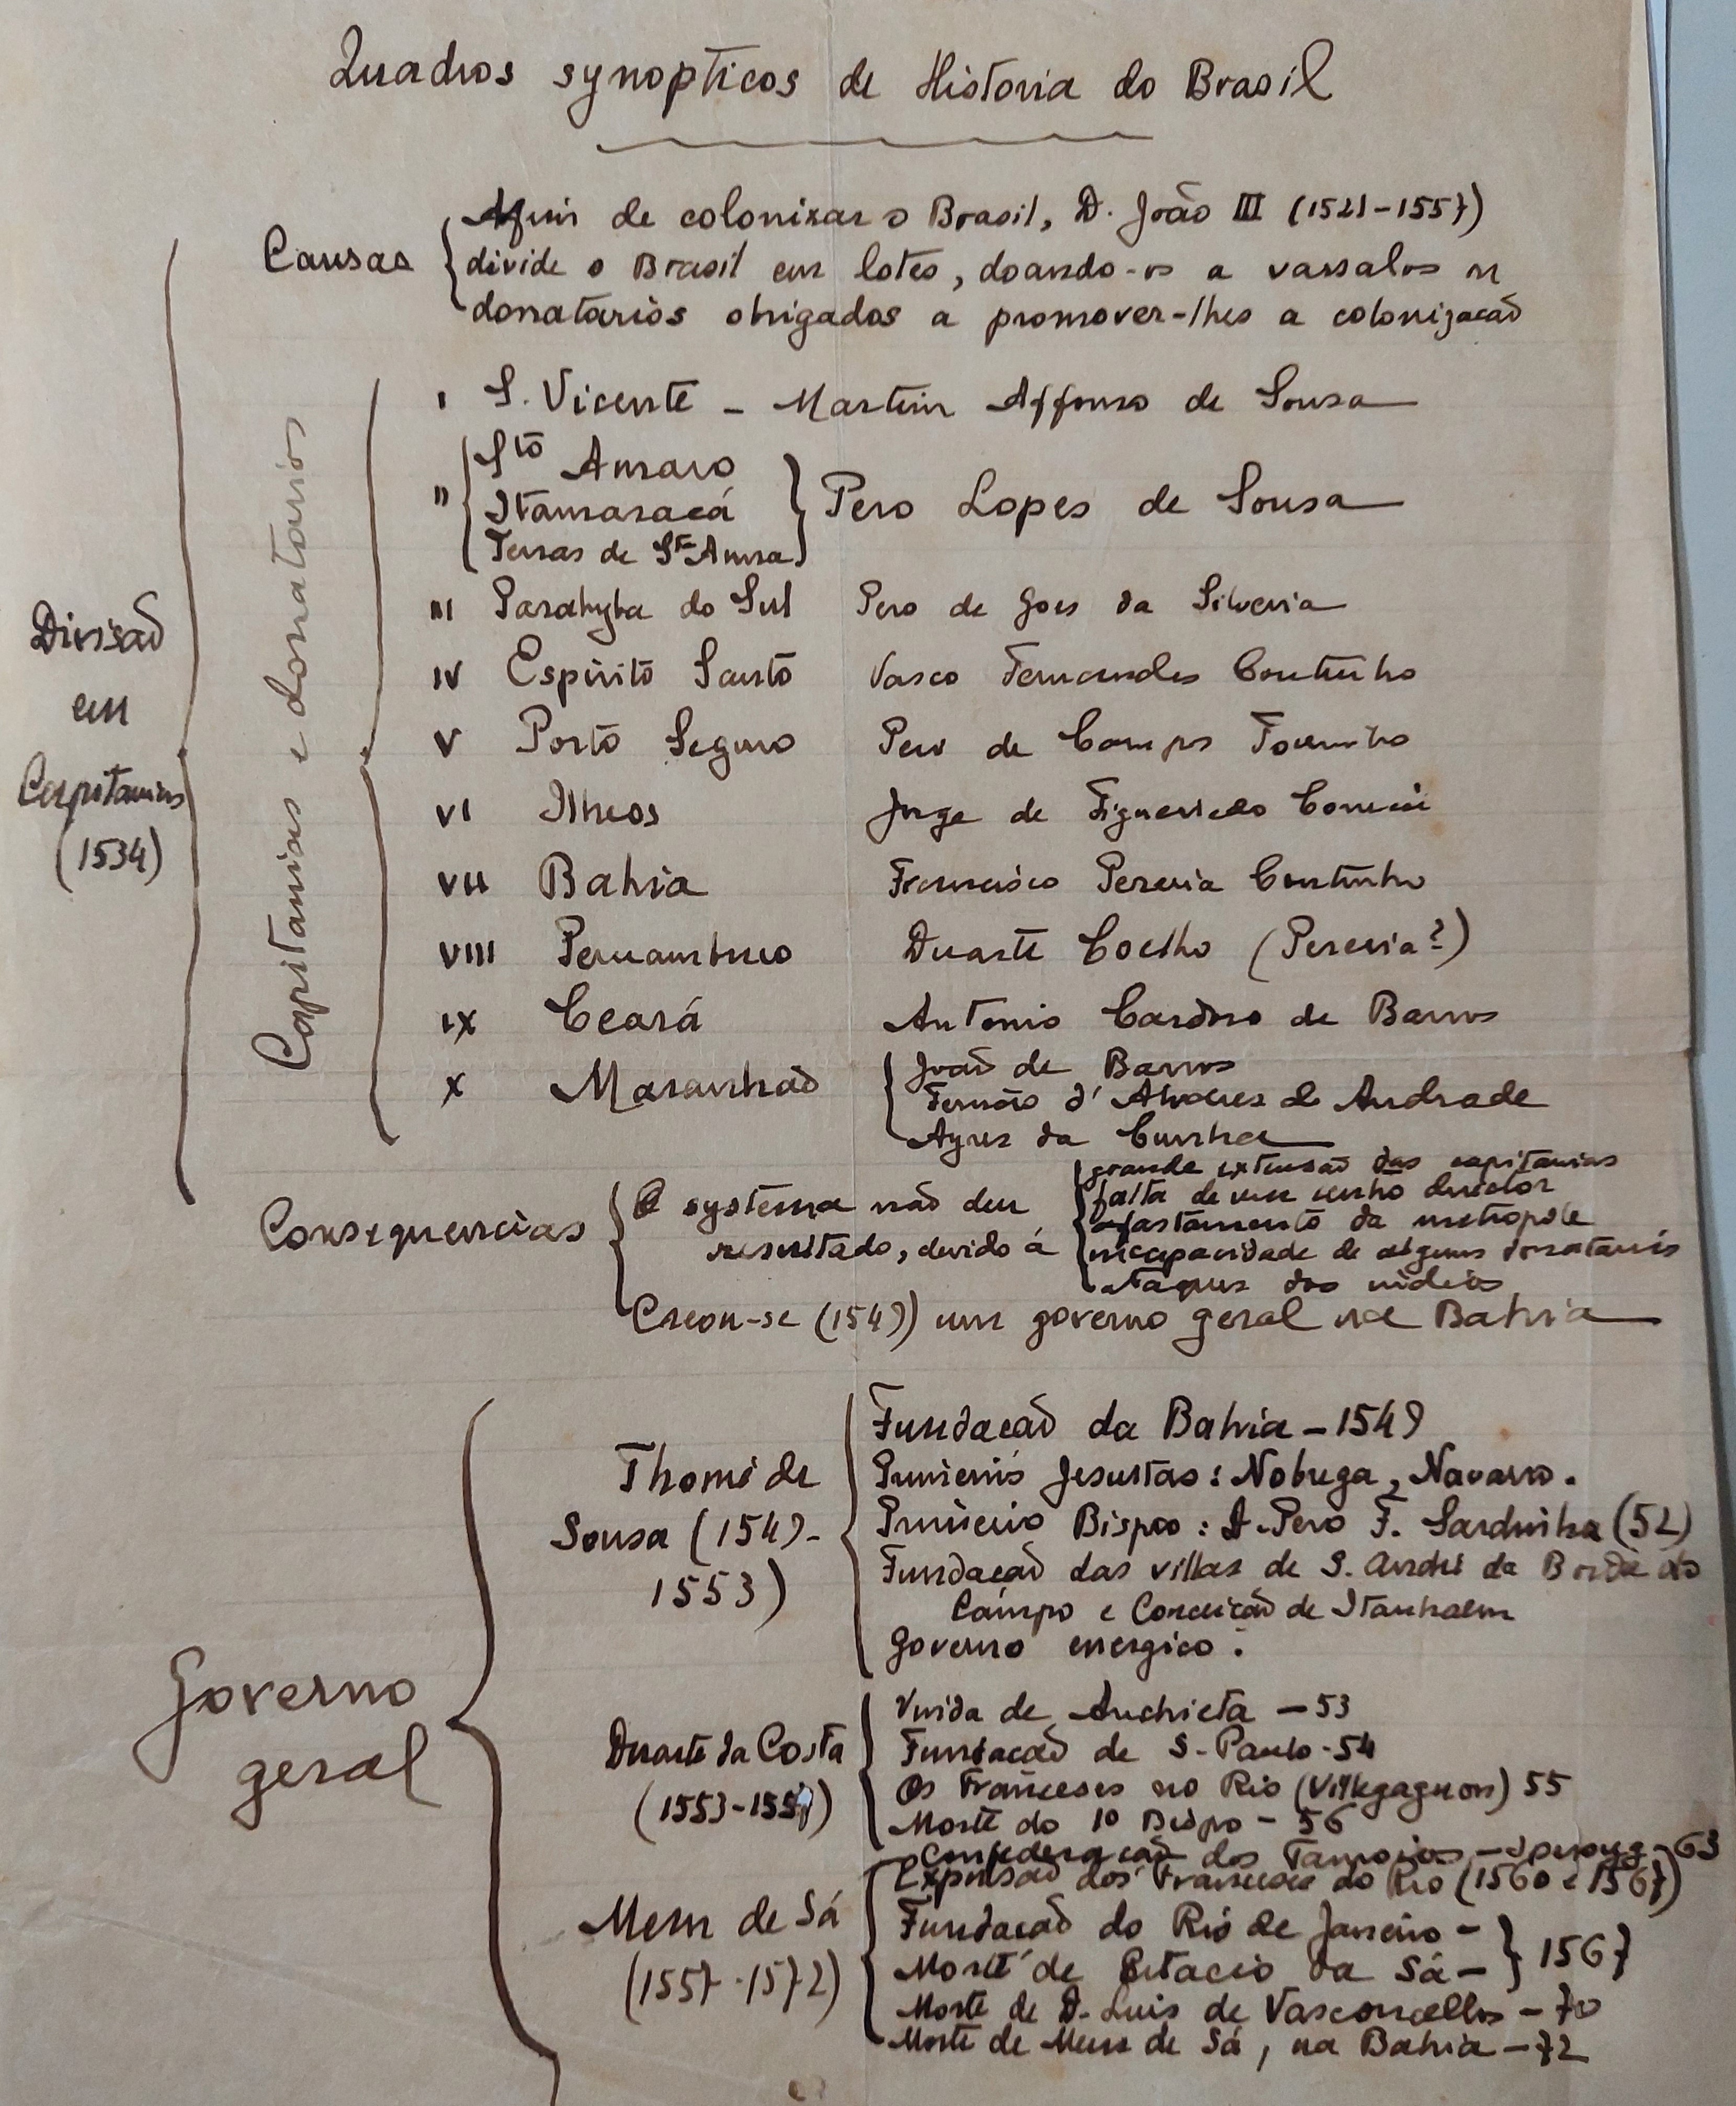 Quadros synopticos de Historia do Brasil
Causas
Afim de colonizar o Brasil, D. João III (1521-1557)
divide o Brasil em lotes, doando-os a vassalos ou
donatarios obrigados a promover-lhes a colonização
Divisão
em
Capitanias
(1534)
Capitanias e donatarios
I S. Vicente - Martim Affonso de Sousa
II Sto Amaro
Itamaracá
Terras de Sta Anna
Pero Lopes de Sousa
III Parahyba do Sul Pero de Goes da Silveira
IV Espirito Santo Vasco Fernandes Coutinho
V Porto Seguro Pero de Campos Tourinho
VI Ilheos Jorge de Figueiredo Correia
VII Bahia Francisco Pereira Coutinho
VIII Pernambuco Duarte Coelho (Pereira?)
IX Ceará Antonio Cardoso de Barros
X Maranhão
João de Barros
Fernão d'Alvares de Andrade
Ayres da Cunha
Consequencias
O systema não deu
resultado, devido á
grande extensão das capitanias
falta de um cunho director
afastamento da metropole
incapacidade de alguns donatarios
ataques dos indios
Creou-se (1549) um governo geral na Bahia
Governo
geral
Thomé de
Sousa (1549-
1553)
Fundação da Bahia - 1549
Primeiros Jesuitas: Nobrega, Navarro.
Primeiro Bispo: D. Pero F. Sardinha (52)
Fundação das villas de S. André da Borda do
Campo e Conceição de Itanhaem
Governo energico.
Duarte da Costa
(1553-1557)
Vinda de Anchieta - 53
Fundação de S. Paulo - 54
Os Franceses no Rio (Villegagnon) 55
Morte do 1º Bispo - 56
Mem de Sá
(1557-1572)
Confederação dos Tamoios - Iperoyg - 63
Expulsão dos Franceses do Rio (1560 e 1567)
Fundação do Rio de Janeiro -
Morte de Estacio da Sá - 1567
Morte de D. Luis de Vasconcellos - 70
Morte de Mem de Sá, na Bahia - 72